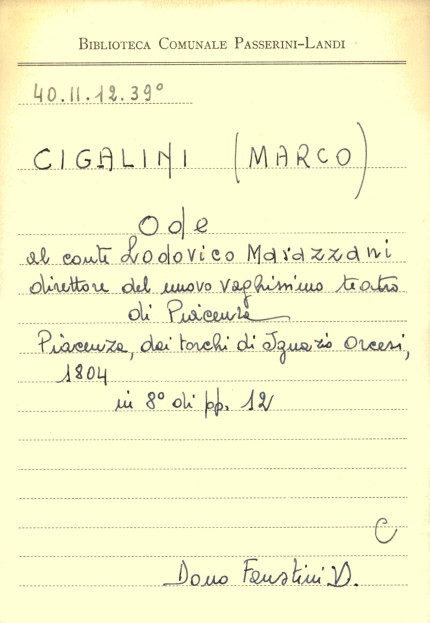 BIBLIOTECA COMUNALE PASSERINI-LANDI
40.II.12.39°
CIGALINI (MARCO)
Ode
al conte Lodovico Marazzani
direttore del nuovo vaghissimo teatro
di Piacenza
Piacenza, dai torchi di Ignazio Orcesi,
1804
in 8° di pp. 12
C
Dono Faustini D.